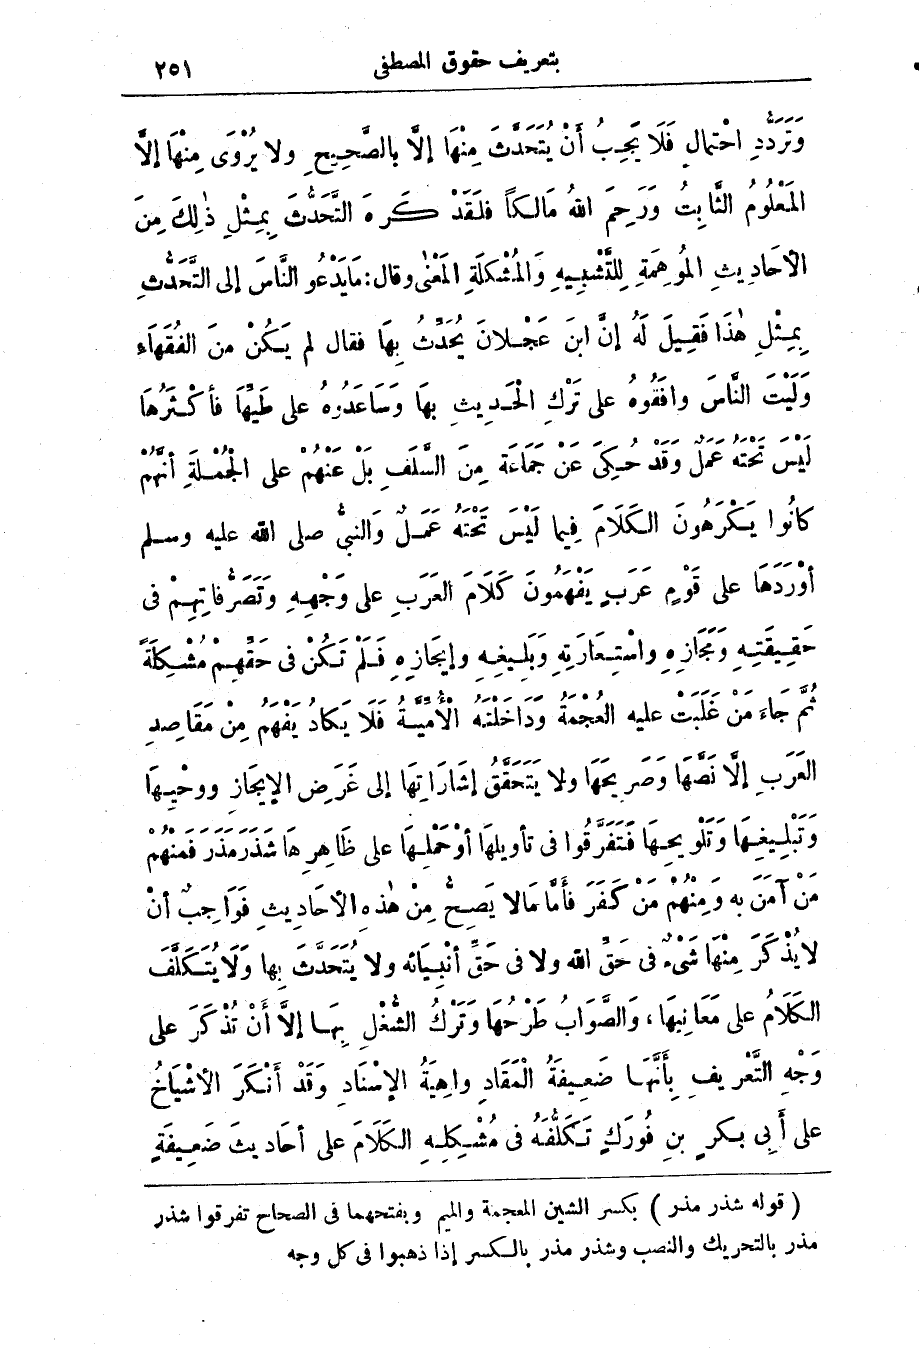 بتعريف حقوق المصطفى ٢٥١
وَتَرَدُّدِ احْتِمَالٍ فَلَا يَجِبُ أَنْ يُتَحَدَّثَ مِنْهَا إلَّا بِالصَّحِيحِ ولا يُرْوَى مِنْهَا إلَّا
المَعْلُومُ الثَّابِتُ وَرَحِمَ اللهُ مَالِكاً فلَقَدْ كَرِهَ التَّحَدُّثَ بِمِثْلِ ذٰلِكَ مِنَ
الأحَادِيثِ المُوهِمَةِ لِلتَّشْبِيهِ وَالمُشْكِلَةِ المَعْنٰى وقال : مَا يَدْعُو النَّاسَ إلى التَّحَدُّثِ
بِمِثْلِ هٰذَا فَقِيلَ لَهُ إنَّ ابنَ عَجْلانَ يُحَدِّثُ بِهَا فقال لم يَكُنْ منَ الفُقَهَاءِ
وَلَيْتَ النَّاسَ وافَقُوهُ على تَرْكِ الحَدِيثِ بها وَسَاعَدُوهُ على طَيِّهَا فأكْثَرُهَا
لَيْسَ تَحْتَهُ عَمَلٌ وَقَدْ حُكِىَ عَنْ جَمَاعَة مِنَ السَّلَفِ بَلْ عَنْهُمْ على الجُمْلَةِ أنَّهُمْ
كانُوا يَكْرَهُونَ الكَلَامَ فِيما لَيْسَ تَحْتَهُ عَمَلٌ وَالنبىُّ صلى الله عليه وسلم
أوْرَدَهَا على قَوْمٍ عَرَبٍ يَفْهَمُونَ كَلَامَ العَرَبِ على وَجْهِهِ وَتَصَرُّفاتِهِمْ فى
حَقِيقَتِهِ وَمَجَازِهِ واسْتِعَارَتِهِ وَبَلِيغِهِ وإيجَازِهِ فَلَمْ تَكُنْ فى حَقِّهِمْ مُشْكِلَةً
ثُمَّ جَاءَ مَنْ غَلَبَتْ عليه العُجْمَةُ وَدَاخَلَتْهُ الْأُمِّيَّةُ فَلَا يَكادُ يَفْهَمُ مِنْ مَقَاصِدِ
العَرَبِ إلَّا نَصَّهَا وَصَرِيحَهَا ولا يَتَحَقَّقُ إشَارَاتِهَا إلى غَرَضِ الإيجَازِ ووحْيِهَا
وَتَبْلِيغِهَا وَتَلْويحِهَا فَتَفَرَّقُوا فى تأويلِهَا أوْ حَمْلِهَا على ظَاهِرِهَا شَذَرَ مَذَرَ فَمِنْهُمْ
مَنْ آمَنَ به وَمِنْهُمْ مَنْ كَفَرَ فأمَّا مَا لا يَصِحُّ مِنْ هٰذِهِ الأحَادِيثِ فَوَاجِبٌ أنْ
لا يُذْكَرَ مِنْهَا شَىْءٌ فى حَقِّ الله ولا فى حَقِّ أنْبِيَائه ولا يُتَحَدَّثَ بِها وَلَا يُتَكَلَّفَ
الكَلَامُ على مَعَانِيهَا ، وَالصَّوَابُ طَرْحُهَا وَتَرْكُ الشُّغْلِ بِهَا إلَّا أَنْ تُذْكَرَ على
وَجْهِ التَّعْرِيفِ بِأَنَّهَا ضَعِيفَةُ الْمَقَادِ واهِيَةُ الإسْنَادِ وَقَدْ أَنْكَرَ الأشْيَاخُ
على أَبِى بكرٍ بنِ فُورَكٍ تَكَلُّفَهُ فى مُشْكِلِهِ الكَلَامَ على أحَادِيثَ ضَعِيفَةٍ
( قوله شذر مذر ) بكسر الشين المعجمة والميم وبفتحهما فى الصحاح تفرقوا شذر
مذر بالتحريك والنصب وشذر مذر بالكسر إذا ذهبوا فى كل وجه